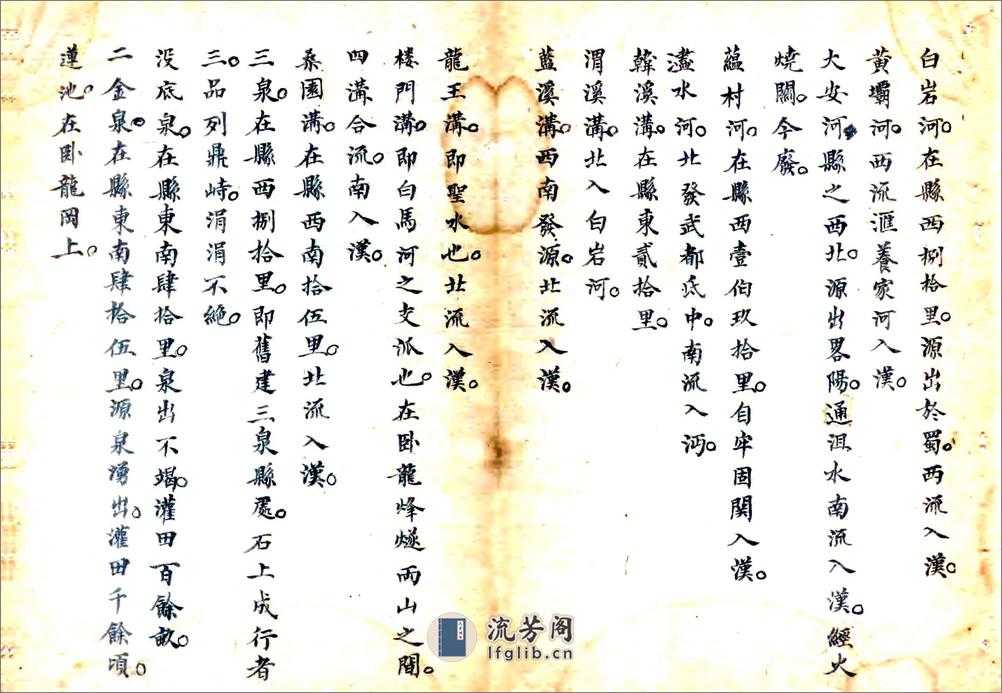 白岩河。在縣西捌拾里。源出於蜀。西流入漢。
黄壩河。西流滙養家河入漢。
大安河。縣之西北。源出畧陽。通沮水南流入漢。經火
燒關。今廢。
蘊村河。在縣西壹伯玖拾里。自牢固関入漢。
濜水河。北發武都氐中。南流入沔。
韓溪溝。在縣東貳拾里。
渭溪溝。北入白岩河。
藍溪溝。西南發源。北流入漢。
龍王溝。即聖水也。北流入漢。
楼門溝。即白馬河之支派也。在卧龍烽燧両山之間。
四溝合流。南入漢。
桑園溝。在縣西南拾伍里。北流入漢。
三泉。在縣西捌拾里。即舊建三泉縣處。石上成行者
三。品列鼎峙。涓涓不絶。
没底泉。在縣東南肆拾里。泉出不竭。灌田百餘畝。
二金泉。在縣東南肆拾伍里。源泉湧出。灌田千餘頃。
蓮池。在卧龍岡上。
流芳阁
lfglib.cn